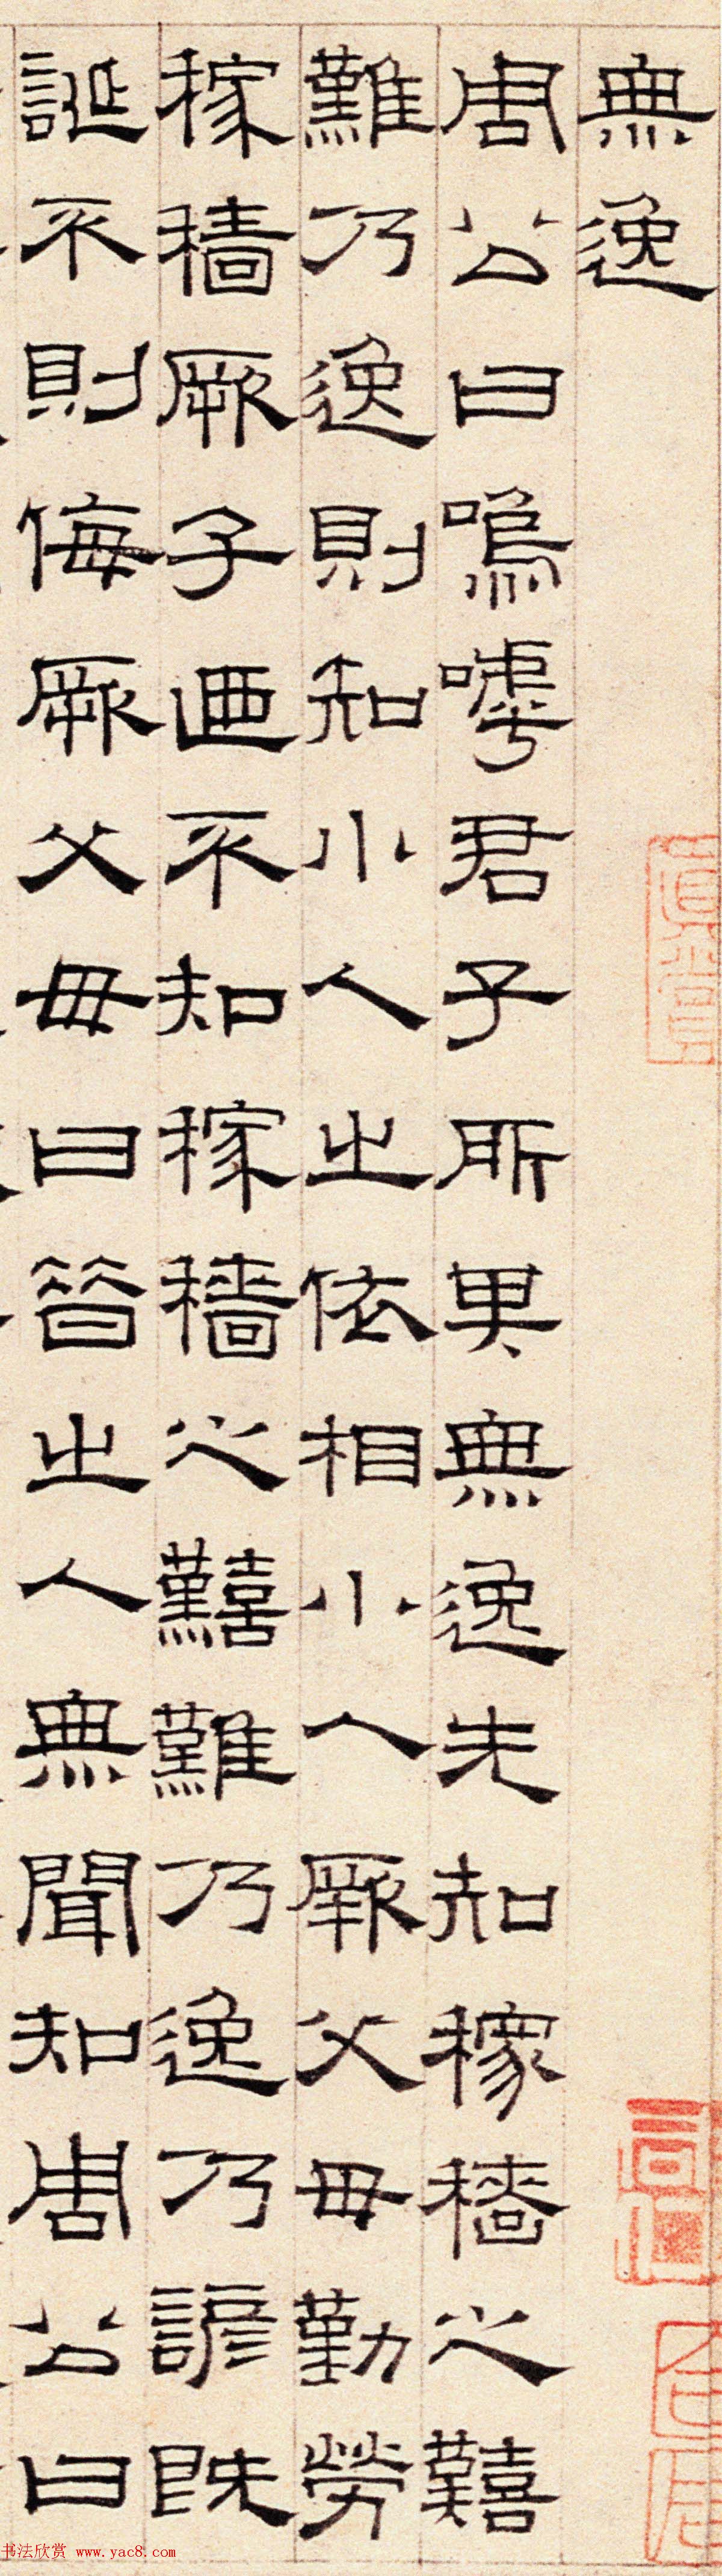 無逸
周公曰嗚嘑君子所其無逸先知稼穡之囏
難乃逸則知小人之依相小人厥父毋勤勞
稼穡厥子迺不知稼穡之囏難乃逸乃諺既
誕不則侮厥父毋曰昔之人無聞知周公曰
书法欣赏 www.yac8.com